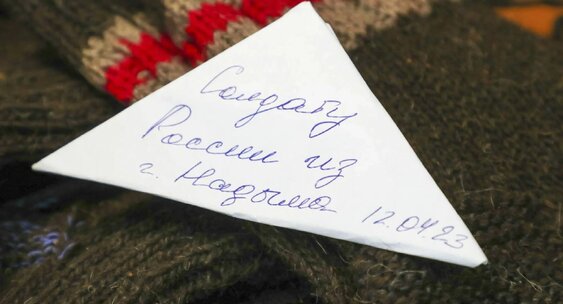 Солдату
России из
г. Надыма 12.04.23